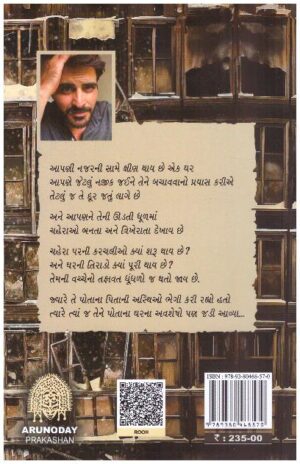 આપણી નજરની સામે ક્ષીણ થાય છે એક ઘર
આપણે જેટલું નજીક જઈને તેને બચાવવાનો પ્રયાસ કરીએ
તેટલું જ તે દૂર જતું લાગે છે
અને આપણને તેની ઊડતી ધૂળમાં
ચહેરાઓ બનતા અને વિખેરાતા દેખાય છે
ચહેરા પરની કરચલીઓ ક્યાં શરૂ થાય છે?
અને ઘરની તિરાડો ક્યાં પૂરી થાય છે?
તેમની વચ્ચેનો તફાવત ધૂંધળો જ થતો જાય છે.
જ્યારે તે પોતાના પિતાની અસ્થિઓ ભેગી કરી રહ્યો હતો
ત્યારે ત્યાં જ તેને પોતાના ઘરના અવશેષો પણ જડી આવ્યા...
ARUNODAY
PRAKASHAN
ROOH
ISBN : 978-93-80468-57-0
9 789380 468570
₹ : 235-00